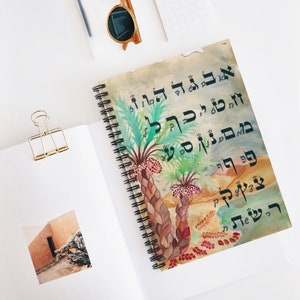 א ב ג ד ה ו ז
ח ט י כ ך ל
מ ם נ ן ס ע
פ ף
צ ץ ק
ר ש ת